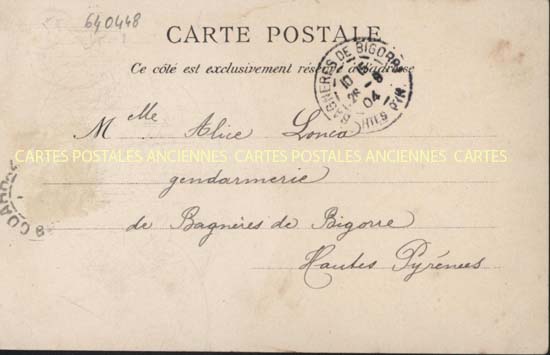 640448
CARTE POSTALE
Ce côté est exclusivement réservé à l'adresse
BAGNÈRES DE BIGORRE
10
26 -8
04
HTES PYR.
Mlle Alice Lonca
CARTES POSTALES ANCIENNES CARTES POSTALES ANCIENNES CARTES
gendarmerie
de Bagnères de Bigorre
Hautes Pyrénees